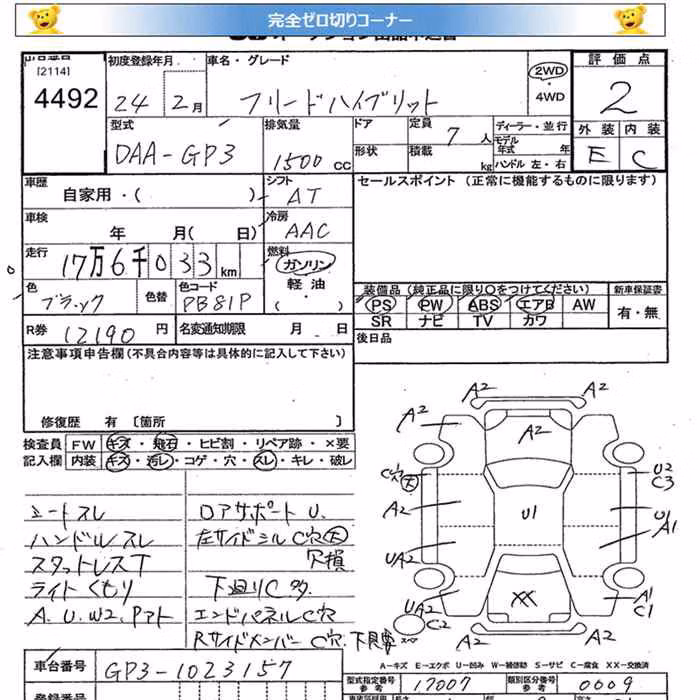 完全ゼロ切りコーナー
[2114]
4492
初度登録年月
24 2月
車名・グレード
フリードハイブリット
2WD・4WD
評価点
2
外装 内装
E C
型式
DAA-GP3
排気量
1500cc
ドア
形状
定員 7人
積載 kg
ディーラー・並行
モデル年式 年
ハンドル 左・右
車歴
自家用・( )
シフト
AT
セールスポイント (正常に機能するものに限ります)
車検
年 月( 日)
冷房
AAC
走行
17万6千033km
燃料
ガソリン
軽油・( )
色
ブラック
色替
色コード
PB81P
装備品 (純正品に限り○をつけてください)
PS PW ABS エアB AW
SR ナビ TV カワ
新車保証書
有・無
R券 12190円
名変通知期限 月 日
後日品
注意事項申告欄(不具合内容等は具体的に記入して下さい)
修復歴 有 〔箇所 〕
検査員記入欄
FW キズ・飛石・ヒビ割・リペア跡・×要
内装 キズ・汚レ・コゲ・穴・スレ・キレ・破レ
シートスレ
ハンドルスレ
スタットレスT
ライトくもり
A.U.W2.Pアト
ロアサポートU.
左サイドシルC穴大
穴損
下廻りC多
エンドパネルC穴
RサイドメンバーC穴.
A2 A2
A2 A2 A2
C穴大 U2 C3
A2 U1 U1 A1
UA2
UA2 XX A1 C1
C2
A2 A2
A-キズ E-エクボ U-凹み W-補修跡 S-サビ C-腐食 XX-交換済
車台番号
GP3-1023157
型式指定番号 参考
17007
類別区分番号 参考
0009